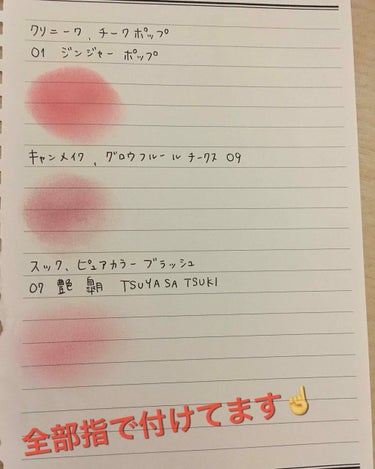 クリニーク、チークポップ
01 ジンジャー ポップ
キャンメイク、グロウフルールチークス 09
スック、ピュアカラー ブラッシュ
07 艶 皐月 TSUYA SA TSUKI
全部指で付けてます☝